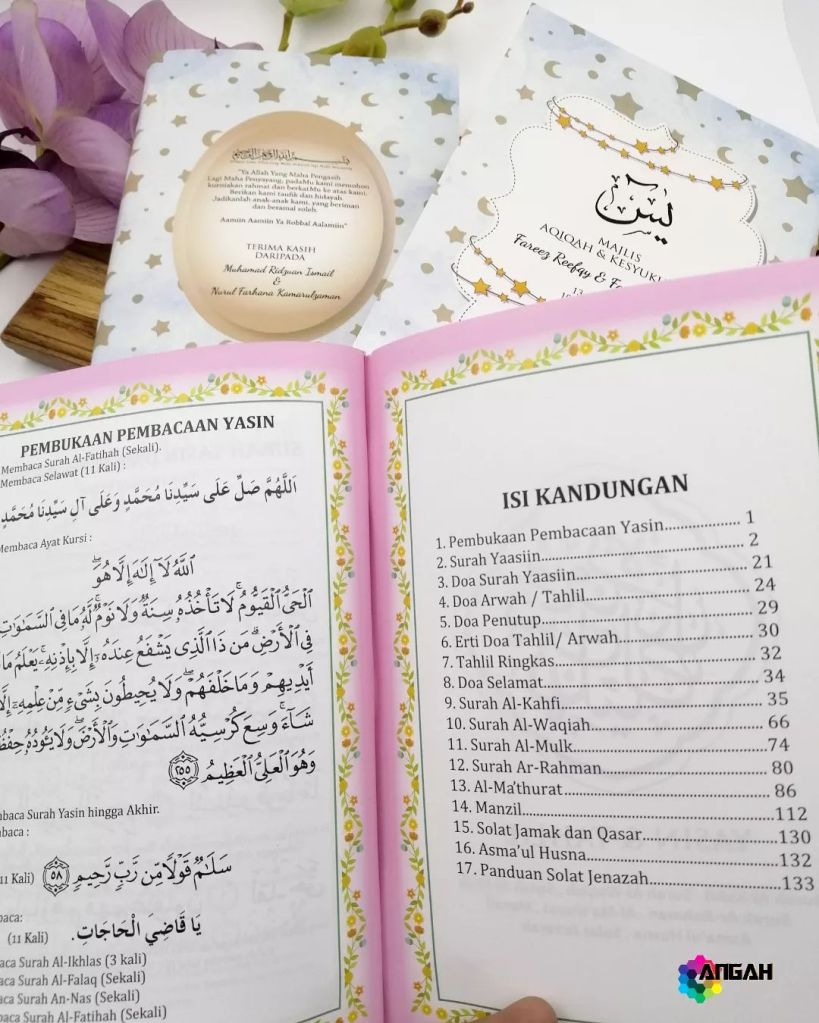 "Ya Allah Yang Maha Pengasih
Lagi Maha Penyayang, padaMu kami memohon
kurniakan rahmat dan berkatMu ke atas kami.
Berikan kami taufik dan hidayah.
Jadikanlah anak-anak kami, yang beriman
dan beramal soleh.
Aamiin Aamiin Ya Robbal Aalamiin"
TERIMA KASIH
DARIPADA
Muhamad Ridzuan Ismail
&
Nurul Farhana Kamarulzaman
يس
MAJLIS
AQIQAH & KESYUKU
Fareez Reefqy & F
PEMBUKAAN PEMBACAAN YASIN
Membaca Surah Al-Fatihah (Sekali).
Membaca Selawat (11 Kali) :
اَللَّهُمَّ صَلِّ عَلَى سَيِّدِنَا مُحَمَّدٍ وَعَلَى آلِ سَيِّدِنَا مُحَمَّدٍ
Membaca Ayat Kursi :
ٱللَّهُ لَآ إِلَٰهَ إِلَّا هُوَۖ
ٱلْحَىُّ ٱلْقَيُّومُۚ لَا تَأْخُذُهُۥ سِنَةٌ وَلَا نَوْمٌۚ لَّهُۥ مَا فِى ٱلسَّمَٰوَٰتِ
فِى ٱلْأَرْضِۗ مَن ذَا ٱلَّذِى يَشْفَعُ عِندَهُۥٓ إِلَّا بِإِذْنِهِۦۚ يَعْلَمُ مَا
أَيْدِيهِمْ وَمَا خَلْفَهُمْۖ وَلَا يُحِيطُونَ بِشَىْءٍ مِّنْ عِلْمِهِۦٓ إِلَّا
شَآءَۚ وَسِعَ كُرْسِيُّهُ ٱلسَّمَٰوَٰتِ وَٱلْأَرْضَۖ وَلَا يَـُٔودُهُۥ حِفْظُ
وَهُوَ ٱلْعَلِىُّ ٱلْعَظِيمُ ٢٥٥
baca Surah Yasin hingga Akhir.
baca :
سَلَٰمٌ قَوْلًا مِّن رَّبٍّ رَّحِيمٍ ٥٨
11 Kali)
baca:
يَا قَاضِيَ الْحَاجَاتِ.
(11 Kali)
aca Surah Al-Ikhlas (3 kali)
aca Surah Al-Falaq (Sekali)
aca Surah An-Nas (Sekali)
aca Surah Al-Fatihah (Sekali)
ISI KANDUNGAN
1. Pembukaan Pembacaan Yasin................. 1
2. Surah Yaasiin............................................ 2
3. Doa Surah Yaasiin................................... 21
4. Doa Arwah / Tahlil................................. 24
5. Doa Penutup............................................ 29
6. Erti Doa Tahlil/ Arwah........................... 30
7. Tahlil Ringkas.......................................... 32
8. Doa Selamat............................................. 34
9. Surah Al-Kahfi......................................... 35
10. Surah Al-Waqiah................................... 66
11. Surah Al-Mulk........................................74
12. Surah Ar-Rahman................................. 80
13. Al-Ma'thurat.......................................... 86
14. Manzil....................................................112
15. Solat Jamak dan Qasar........................130
16. Asma'ul Husna......................................132
17. Panduan Solat Jenazah........................133
ANGAH